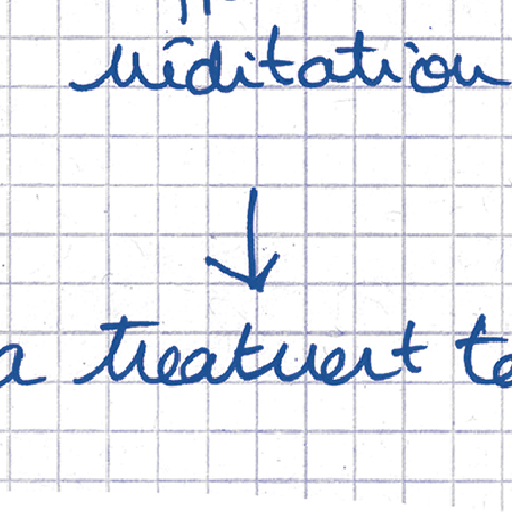 méditation
↓
a treatment te